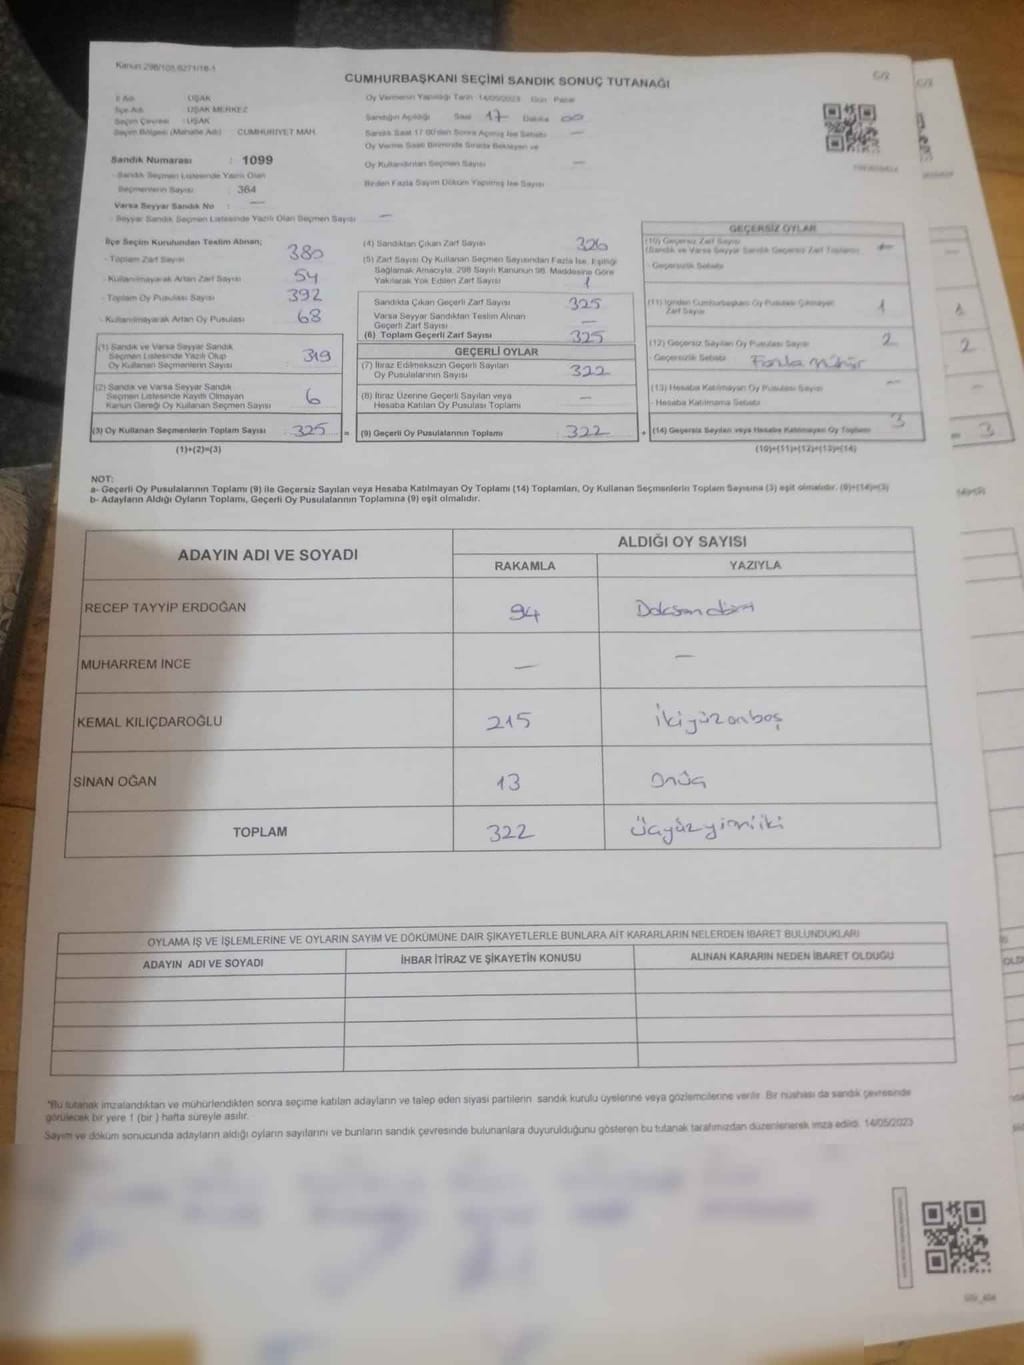 Kanun 298/105,6271/18-1
CUMHURBAŞKANI SEÇİMİ SANDIK SONUÇ TUTANAĞI
C/2
İl Adı : UŞAK
İlçe Adı : UŞAK MERKEZ
Seçim Çevresi : UŞAK
Seçim Bölgesi (Mahalle Adı) CUMHURİYET MAH.
Sandık Numarası : 1099
Sandık Seçmen Listesinde Yazılı Olan
Seçmenlerin Sayısı : 364
Varsa Seyyar Sandık No : —
Seyyar Sandık Seçmen Listesinde Yazılı Olan Seçmen Sayısı —
Oy Vermenin Yapıldığı Tarih 14/05/2023 Gün Pazar
Sandığın Açıldığı Saat 17 Dakika 00
Sandık Saat 17.00'den Sonra Açılmış İse Sebebi —
Oy Verme Saati Bitiminde Sırada Bekleyen ve
Oy Kullandırılan Seçmen Sayısı —
Birden Fazla Sayım Döküm Yapılmış İse Sayısı
İlçe Seçim Kurulundan Teslim Alınan;
- Toplam Zarf Sayısı 380
- Kullanılmayarak Artan Zarf Sayısı 54
- Toplam Oy Pusulası Sayısı 392
- Kullanılmayarak Artan Oy Pusulası 68
(1) Sandık ve Varsa Seyyar Sandık
Seçmen Listesinde Yazılı Olup
Oy Kullanan Seçmenlerin Sayısı 319
(2) Sandık ve Varsa Seyyar Sandık
Seçmen Listesinde Kayıtlı Olmayan
Kanun Gereği Oy Kullanan Seçmen Sayısı 6
(3) Oy Kullanan Seçmenlerin Toplam Sayısı 325 =
(1)+(2)=(3)
(4) Sandıktan Çıkan Zarf Sayısı 326
(5) Zarf Sayısı Oy Kullanan Seçmen Sayısından Fazla İse, Eşitliği
Sağlamak Amacıyla, 298 Sayılı Kanunun 98. Maddesine Göre
Yakılarak Yok Edilen Zarf Sayısı 1
Sandıkta Çıkan Geçerli Zarf Sayısı 325
Varsa Seyyar Sandıktan Teslim Alınan
Geçerli Zarf Sayısı —
(6) Toplam Geçerli Zarf Sayısı 325
GEÇERLİ OYLAR
(7) İtiraz Edilmeksizin Geçerli Sayılan
Oy Pusulalarının Sayısı 322
(8) İtiraz Üzerine Geçerli Sayılan veya
Hesaba Katılan Oy Pusulası Toplamı —
(9) Geçerli Oy Pusulalarının Toplamı 322 +
GEÇERSİZ OYLAR
(10) Geçersiz Zarf Sayısı
(Sandık ve Varsa Seyyar Sandık Geçersiz Zarf Toplamı) —
- Geçersizlik Sebebi
(11) İçinden Cumhurbaşkanı Oy Pusulası Çıkmayan
Zarf Sayısı 1
(12) Geçersiz Sayılan Oy Pusula Sayısı 2
- Geçersizlik Sebebi Fazla mühür
(13) Hesaba Katılmayan Oy Pusulası Sayısı —
- Hesaba Katılmama Sebebi
(14) Geçersiz Sayılan veya Hesaba Katılmayan Oy Toplamı 3
(10)+(11)+(12)+(13)=(14)
NOT:
a- Geçerli Oy Pusulalarının Toplamı (9) ile Geçersiz Sayılan veya Hesaba Katılmayan Oy Toplamı (14) Toplamları, Oy Kullanan Seçmenlerin Toplam Sayısına (3) eşit olmalıdır. (9)+(14)=(3)
b- Adayların Aldığı Oyların Toplamı, Geçerli Oy Pusulalarının Toplamına (9) eşit olmalıdır.
ADAYIN ADI VE SOYADI
ALDIĞI OY SAYISI
RAKAMLA YAZIYLA
RECEP TAYYİP ERDOĞAN 94 Doksandört
MUHARREM İNCE — —
KEMAL KILIÇDAROĞLU 215 İkiyüzonbeş
SİNAN OĞAN 13 Onüç
TOPLAM 322 Üçyüzyirmiiki
OYLAMA İŞ VE İŞLEMLERİNE VE OYLARIN SAYIM VE DÖKÜMÜNE DAİR ŞİKAYETLERLE BUNLARA AİT KARARLARIN NELERDEN İBARET BULUNDUKLARI
ADAYIN ADI VE SOYADI İHBAR İTİRAZ VE ŞİKAYETİN KONUSU ALINAN KARARIN NEDEN İBARET OLDUĞU
*Bu tutanak imzalandıktan ve mühürlendikten sonra seçime katılan adayların ve talep eden siyasi partilerin sandık kurulu üyelerine veya gözlemcilerine verilir. Bir nüshası da sandık çevresinde
görülecek bir yere 1 (bir ) hafta süreyle asılır.
Sayım ve döküm sonucunda adayların aldığı oyların sayılarını ve bunların sandık çevresinde bulunanlara duyurulduğunu gösteren bu tutanak tarafımızdan düzenlenerek imza edildi. 14/05/2023